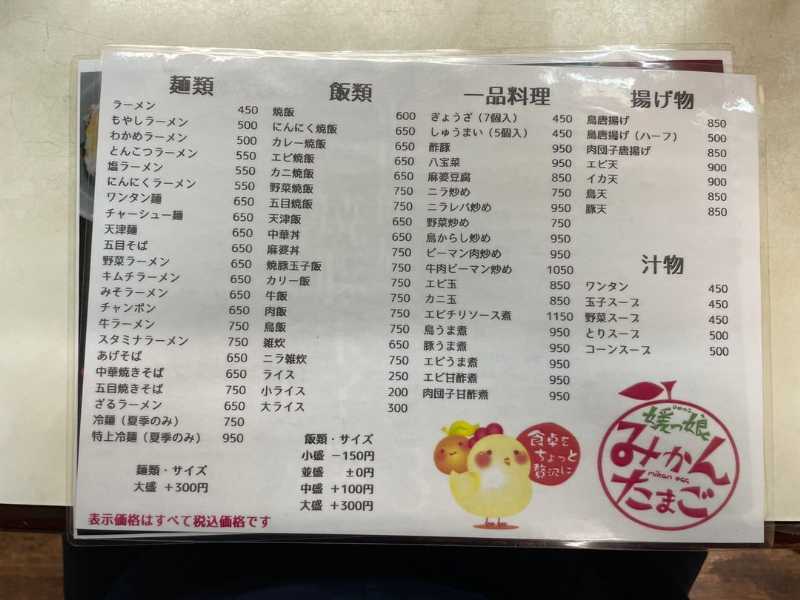 麺類
ラーメン 450
もやしラーメン 500
わかめラーメン 500
とんこつラーメン 550
塩ラーメン 550
にんにくラーメン 550
ワンタン麺 650
チャーシュー麺 650
天津麺 650
五目そば 650
野菜ラーメン 650
キムチラーメン 650
みそラーメン 650
チャンポン 650
牛ラーメン 750
スタミナラーメン 750
あげそば 650
中華焼きそば 650
五目焼きそば 750
ざるラーメン 650
冷麺（夏季のみ） 750
特上冷麺（夏季のみ） 950
麺類・サイズ
大盛 +300円
飯類
焼飯 600
にんにく焼飯 650
カレー焼飯 650
エビ焼飯 650
カニ焼飯 650
野菜焼飯 750
五目焼飯 750
天津飯 650
中華丼 650
麻婆丼 750
焼豚玉子飯 750
カリー飯 750
牛飯 750
肉飯 750
鳥飯 750
雑炊 650
ニラ雑炊 750
ライス 250
小ライス 200
大ライス 300
飯類・サイズ
小盛 −150円
並盛 ±0円
中盛 +100円
大盛 +300円
一品料理
ぎょうざ（7個入） 450
しゅうまい（5個入） 450
酢豚 950
八宝菜 950
麻婆豆腐 850
ニラ炒め 750
ニラレバ炒め 950
野菜炒め 750
鳥からし炒め 950
ピーマン肉炒め 950
牛肉ピーマン炒め 1050
エビ玉 850
カニ玉 850
エビチリソース煮 1150
鳥うま煮 950
豚うま煮 950
エビうま煮 950
エビ甘酢煮 950
肉団子甘酢煮 950
揚げ物
鳥唐揚げ 850
鳥唐揚げ（ハーフ） 500
肉団子唐揚げ 850
エビ天 900
イカ天 900
鳥天 850
豚天 850
汁物
ワンタン 450
玉子スープ 450
野菜スープ 450
とりスープ 500
コーンスープ 500
食卓を
ちょっと
贅沢に
媛っ娘
みかん
mikan egg
たまご
表示価格はすべて税込価格です